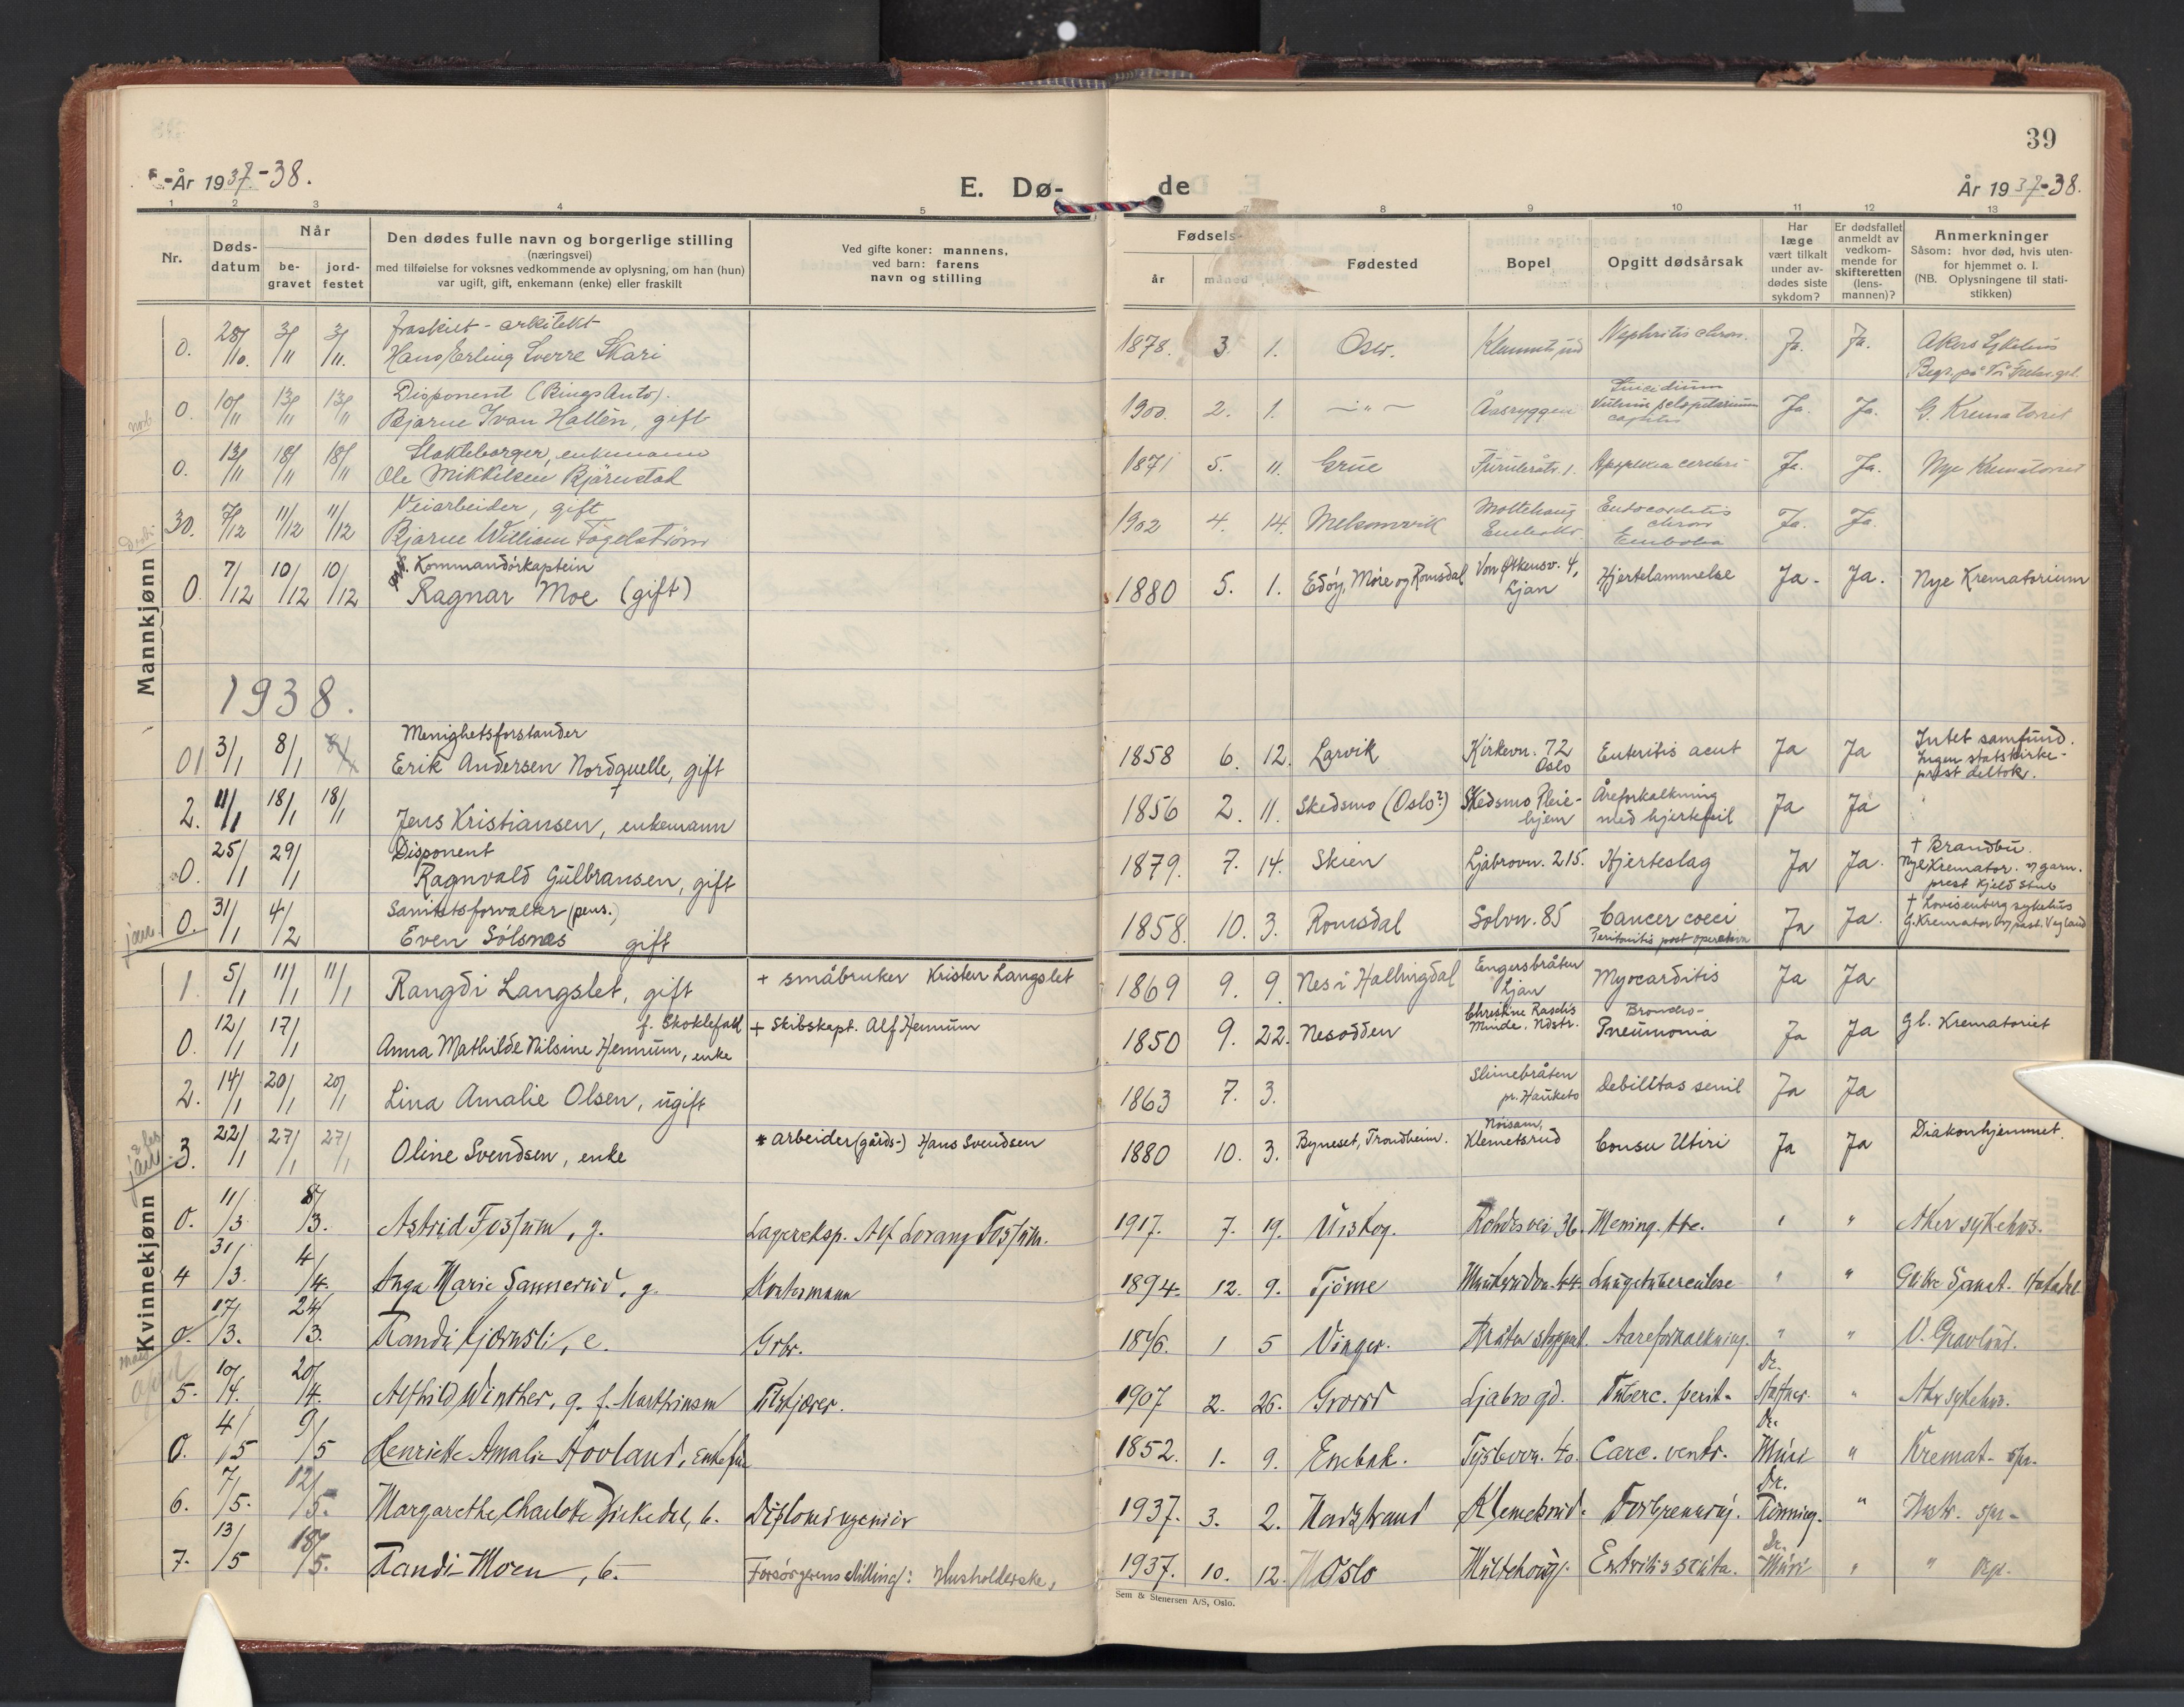 39
År 1937-38.
E. Dø-
de
År 1937-38.
1 2 3 4 5 8 9 10 11 12 13
Nr.
Døds-
datum
Når
be-
gravet
jord-
festet
Den dødes fulle navn og borgerlige stilling
(næringsvei)
med tilføielse for voksnes vedkommende av oplysning, om han (hun)
var ugift, gift, enkemann (enke) eller fraskilt
Ved gifte koner: mannens,
ved barn: farens
navn og stilling
Fødsels-
år
måned
Fødested
Bopel
Opgitt dødsårsak
Har
læge
vært tilkalt
under av-
dødes siste
sykdom?
Er dødsfallet
anmeldt av
vedkom-
mende for
skifteretten
(lens-
mannen)?
Anmerkninger
Såsom: hvor død, hvis uten-
for hjemmet o. l.
(NB. Oplysningene til stati-
stikken)
Mannkjønn
fraskilt - arkitekt
0. 28/10. 3/11 3/11. Hans Erling Sverre Skari 1878. 3 1. Oslo. Nephritis chron. Ja. Ja. Akers Sykehus
Disponent (Rings Auto).
0. 10/11 13/11 13/11 Bjarne Ivan Hallèn, gift 1900. 2. 1. -"- Åsryggen Suicidium
capitis Ja. Ja. G. Krematoriet
enkemann
0. 13/11 18/11 18/11 Ole Mikkelsen Bjørnstad 1871 5. 11. Grue Apoplexia cerebri Ja. Ja. Nye Krematoriet
Veiarbeider, gift
30. 7/12 11/12 11/12 Bjarne William Fogelstrøm 1902 4. 14. Melsomvik Endocarditis
chron
Embolia Ja. Ja.
Kommandørkaptein
0. 7/12 10/12 10/12 Ragnar Moe (gift) 1880 5. 1. Edøy, Møre og Romsdal 4,
Ljan Hjertelammelse Ja. Ja. Nye Krematorium
1938.
Menighetsforstander
01 3/1 8/1 Erik Andersen Nordquelle, gift 1858 6. 12. Larvik Kirkevn. 72
Oslo Enteritis acut Ja Ja Intet samfund.
Ingen statskirke-
prest deltok.
2. 11/1 18/1 18/1 Jens Kristiansen, enkemann 1856 2. 11. Skedsmo (Oslo?) Skedsmo Pleie-
hjem Åreforkalkning
med hjertefeil Ja Ja
Disponent
0. 25/1 29/1 Ragnvald Gulbransen, gift 1879. 7. 14. Skien Ljabrovn. 215. Hjerteslag Ja Ja. + Brandbu.
Nye Kremator. v/ garn.
prest Kjeld Stub
Sanitetsforvalter (pens.)
jan. 0. 31/1 4/2 Even Sølsnes gift 1858. 10. 3. Romsdal Solvn. 85 Cancer coeci
Peritonitis post operativa Ja Ja. + Lovisenberg sykehus
G. Kremator
Kvinnekjønn
1. 5/1 11/1 11/1 Rangdi Langslet, gift + småbruker Kristen Langslet 1869 9. 9. Nes i Hallingdal Engersbråten
Ljan Myocarditis Ja Ja
f. Skoklefald
0. 12/1 17/1 Anna Mathilde Nilsine Hennum, enke + Skibskapt. Alf Hennum 1850 9. 22. Nesodden Christine Raschs
Minde. Ndstr. Broncho-
Pneumonia Ja Ja Gl. Krematoriet
2. 14/1 20/1 20/1 Lina Amalie Olsen, ugift 1863 7. 3. Slimebråten
pr. Hauketo Debilitas senil Ja Ja
3. 22/1 27/1 27/1 Oline Svendsen, enke * arbeider (gårds-) Hans Svendsen 1880 10. 3. Byneset, Trondheim. Klemetsrud Consu Utiri Ja Ja Diakonhjemmet.
0. 11/3 8/3. Astrid Fossum, g. Lagereksp. Alf Lorang Fossum. 1917. 7. 19. Urskog. 36. Mening. tbc. " " Aker sykehus.
4 31/3. 4/4. Inga Marie Sannerud, g. Kontormann 1894. 12. 9. Tjøme 44. Lungetuberculose " "
0. 17/3. 24/3. Randi Kjernsli, e. Grbr. 1846. 1 5 Vinger. Aareforkalkning. " " V. Gravlund.
april
5. 10/4. 20/4. Alfhild Winther, g. f. Marthinsen Filskjærer. 1907 2. 26. Grorud Ljabro gd. Tuberc. perit. Dr. " Aker sykehus.
0. 4/5 9/5 Henriette Amalie Hovland, Enkefru 1852. 1. 9. Enebak. 40. Carc. ventr. Dr. " Kremat.
6. 7/5. 12/5. Margarethe Charlotte b. Diplomingeniør 1937. 3. 2. Nordstrand Klemetsrud. Forbrenning. Dr. "
7. 13/5 18/5. Randi Moen, b. Forsørgerens stilling: Husholderske. 1937. 10. 12. Oslo Dr. " "
Sem & Stenersen A/S, Oslo.